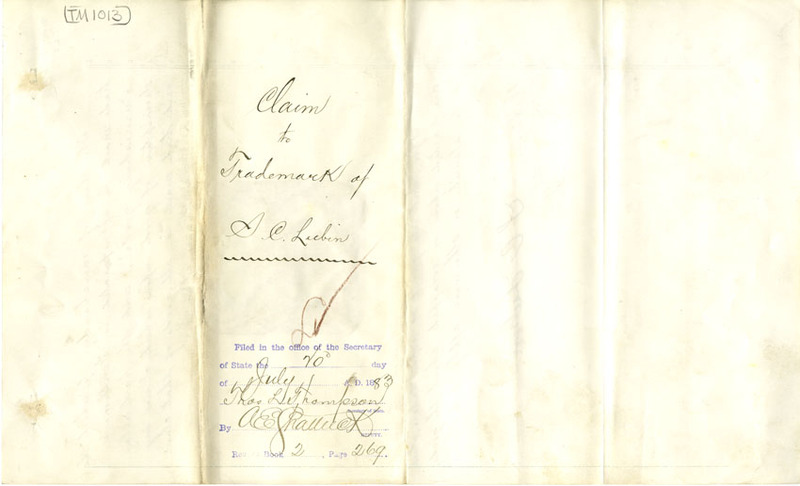 TM1013
Claim
to
Trademark of
S. C. Lubin
Filed in the office of the Secretary
of State the 20" day
of July A. D. 1883
Thos L. Thompson
Secretary of State.
By A E Shattuck
DEPUTY.
Record Book 2, Page 269.